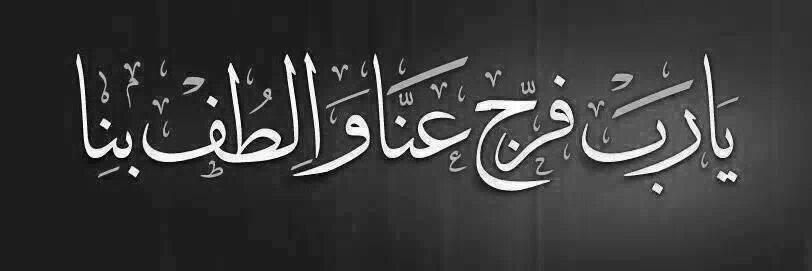 يَا رَبَ فرّج عَنَّا وَ الِطُف بنِا